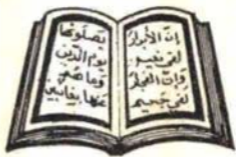 إِنَّ الأبرار
لفي نعيم
وَإنَّ الفجار
لفي جحيم
يصلونها
يوم الدّين
وما هم
عنها بغائبين